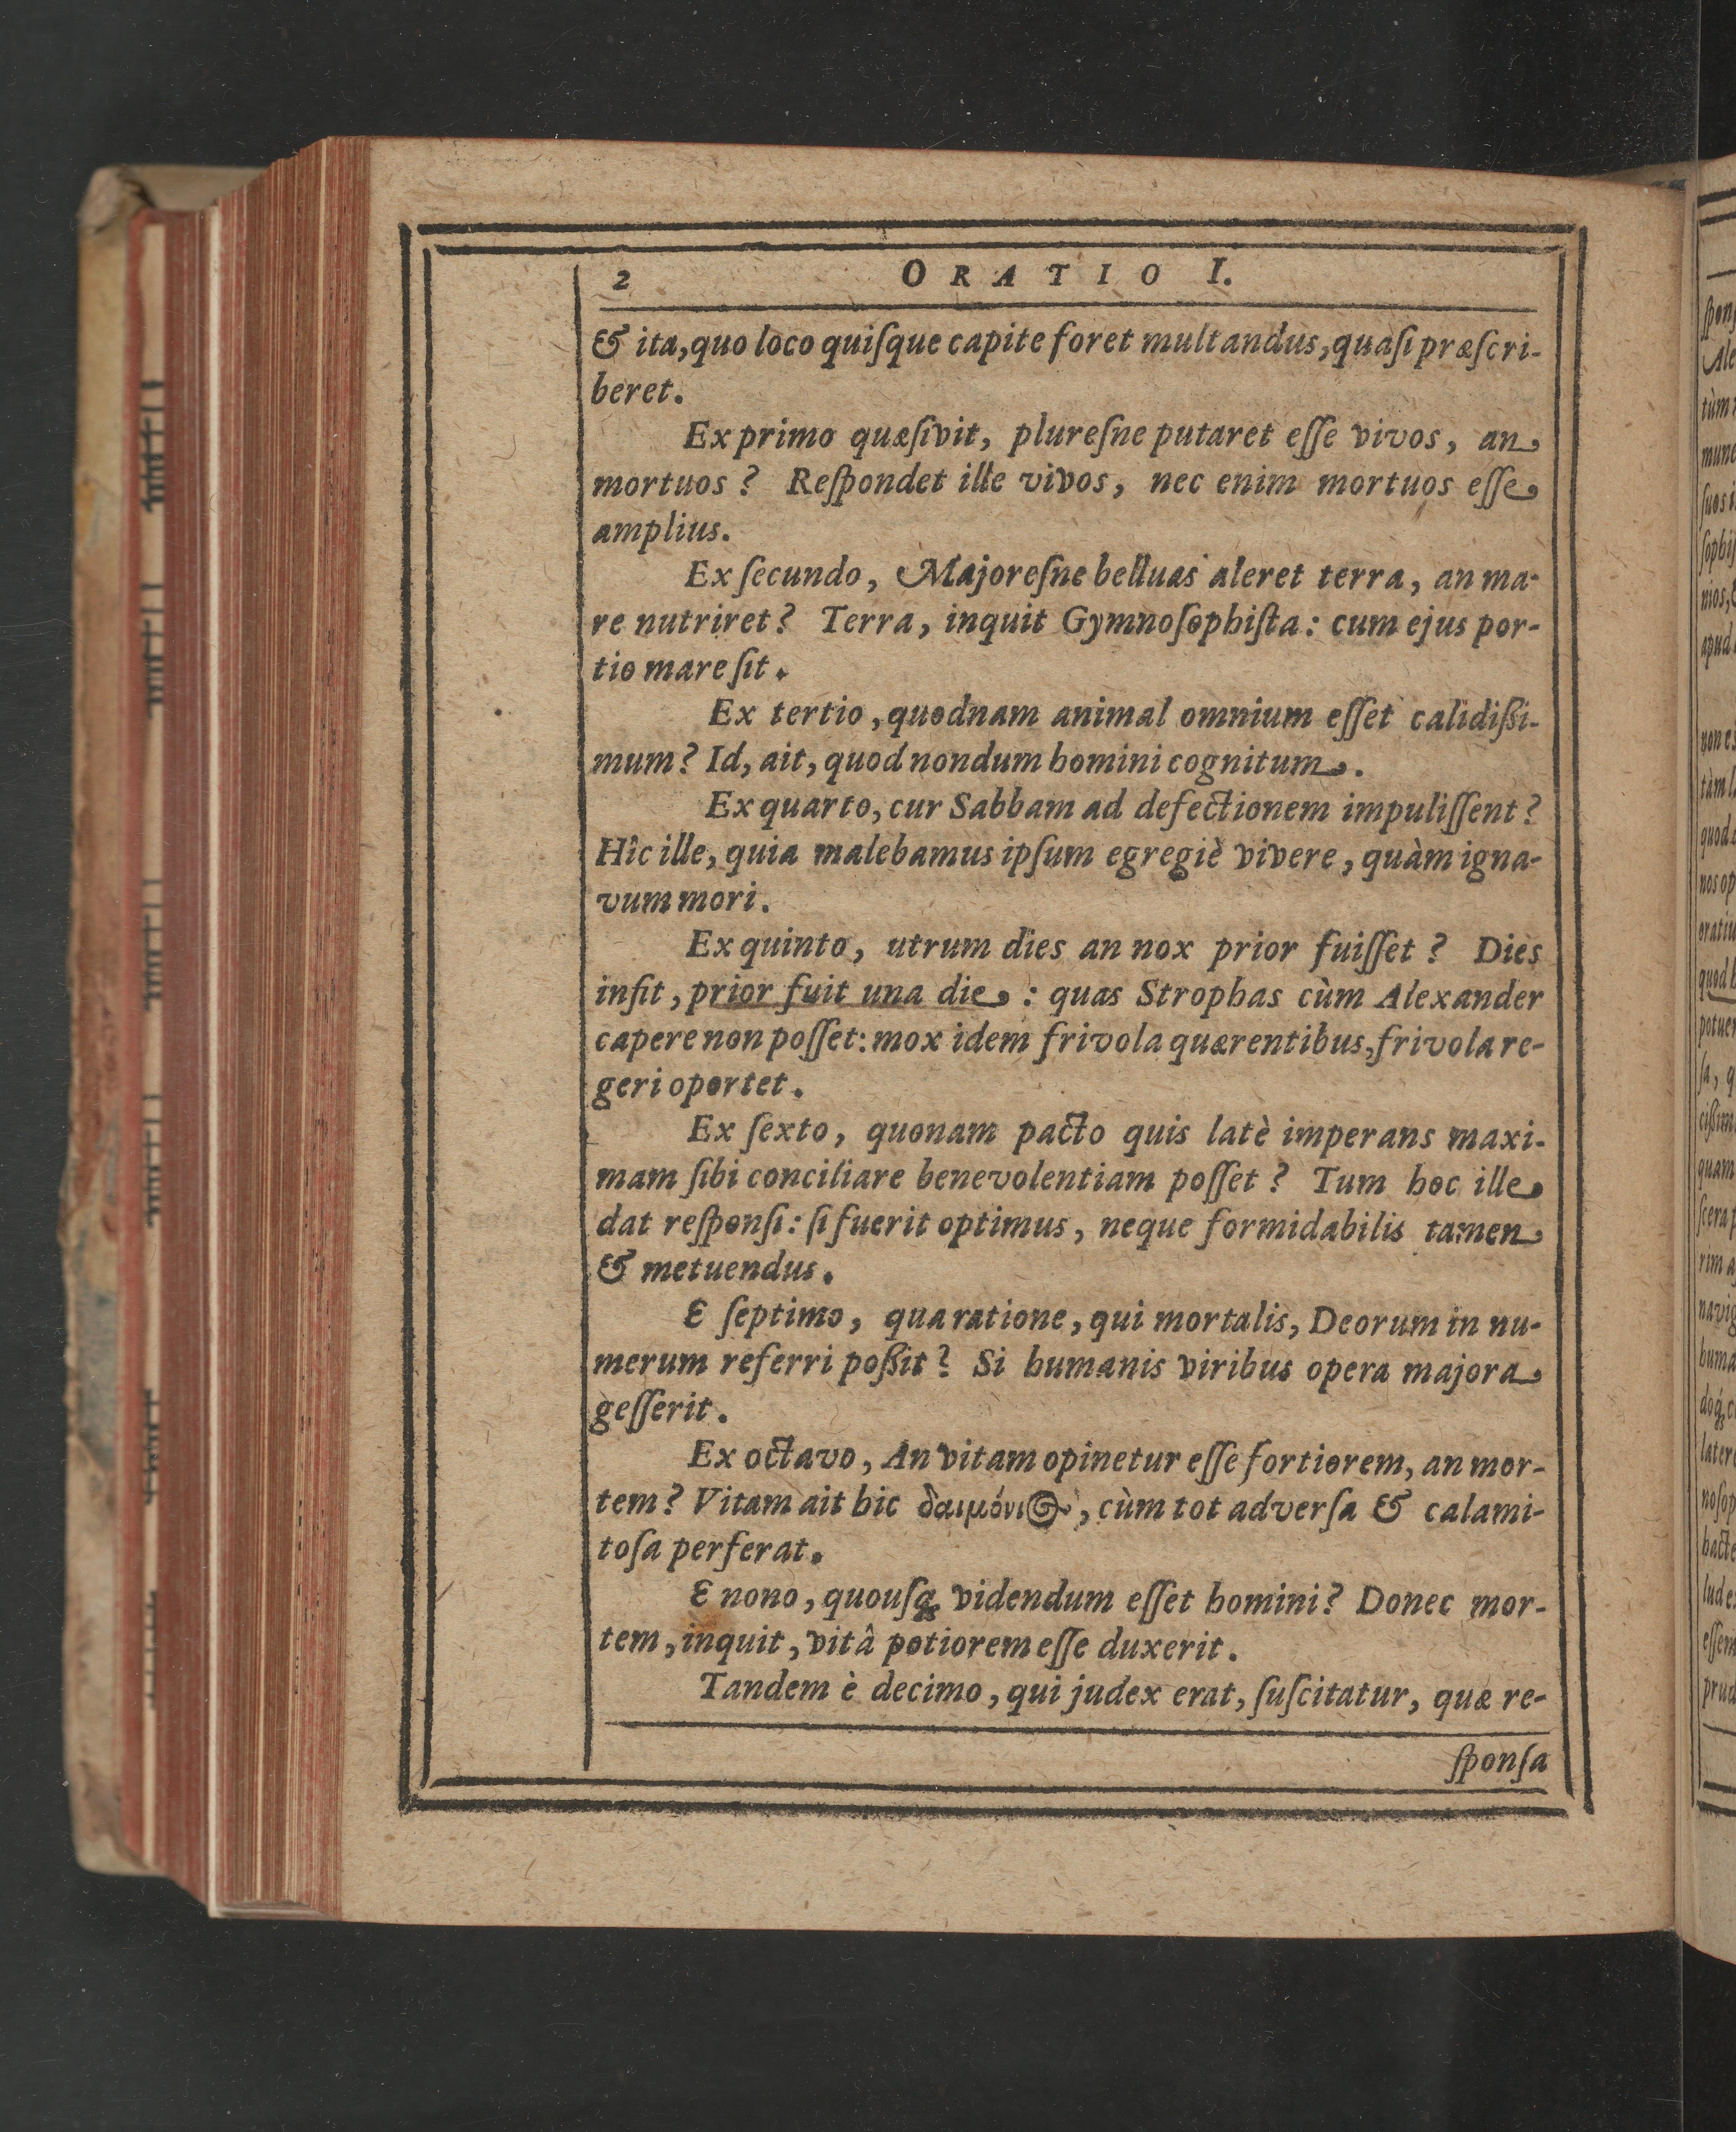 2 ORATIO I.
& ita, quo loco quiſque capite foret multandus, quaſi præſcri-
beret.
Ex primo quæſivit, pluresne putaret eſſe vivos, an
mortuos? Reſpondet ille vivos, nec enim mortuos eſſe
amplius.
Ex ſecundo, Majoreſne belluas aleret terra, an ma-
re nutriret? Terra, inquit Gymnoſophiſta: cum ejus por-
tio mare ſit.
Ex tertio, quodnam animal omnium eſſet calidißi-
mum? Id, ait, quod nondum homini cognitum.
Ex quarto, cur Sabbam ad defectionem impuliſſent?
Hîc ille, quia malebamus ipſum egregiè vivere, quàm igna-
vum mori.
Ex quinto, utrum dies an nox prior fuiſſet? Dies
infit, prior fuit una die: quas Strophas cùm Alexander
capere non poſſet: mox idem frivola quærentibus, frivola re-
geri oportet.
Ex ſexto, quonam pacto quis latè imperans maxi-
mam ſibi conciliare benevolentiam poſſet? Tum hoc ille
dat reſponſi: ſi fuerit optimus, neque formidabilis tamen
& metuendus.
E ſeptimo, qua ratione, qui mortalis, Deorum in nu-
merum referri poßit? Si humanis viribus opera majora
geſſerit.
Ex octavo, An vitam opinetur eſſe fortiorem, an mor-
tem? Vitam ait hic δαιμόνιος, cùm tot adverſa & calami-
toſa perferat.
E nono, quouſq; videndum eſſet homini? Donec mor-
tem, inquit, vitâ potiorem eſſe duxerit.
Tandem è decimo, qui judex erat, ſuſcitatur, quæ re-
ſponſa